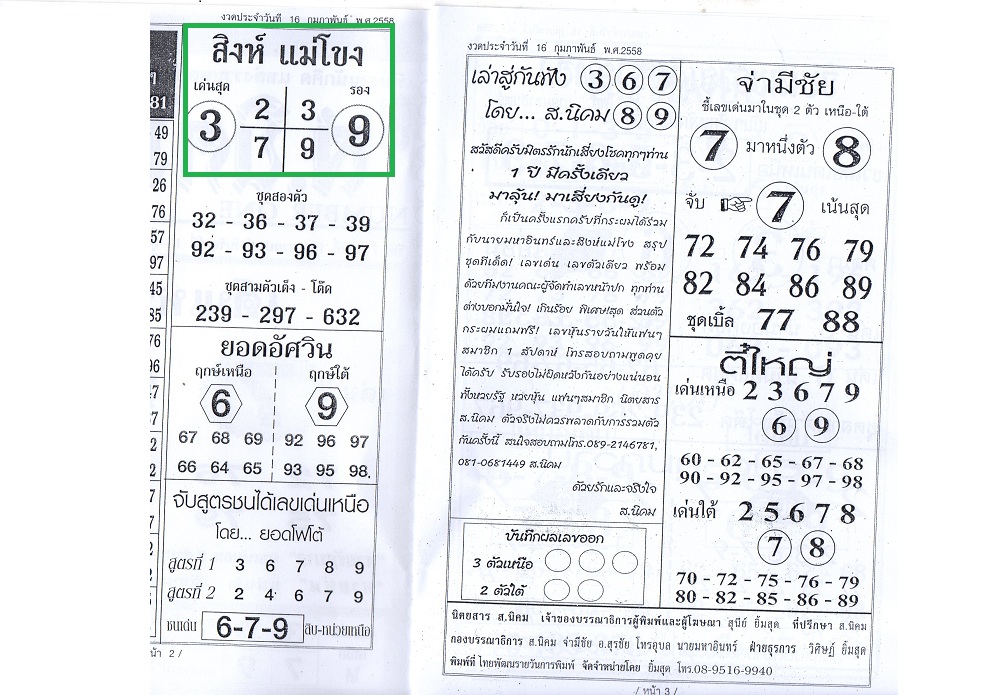 งวดประจำวันที่ 16 กุมภาพันธ์ พ.ศ.2558
81
49
79
26
76
57
97
45
85
76
96
สิงห์ แม่โขง
เด่นสุด
รอง
3
2 3
7 9
9
ชุดสองตัว
32 - 36 - 37 - 39
92 - 93 - 96 - 97
ชุดสามตัวเต็ง - โต๊ด
239 - 297 - 632
ยอดอัศวิน
ฤกษ์เหนือ
ฤกษ์ใต้
6
9
67 68 69 92 96 97
66 64 65 93 95 98.
จับสูตรชนได้เลขเด่นเหนือ
โดย... ยอดโฟโต้
สูตรที่ 1 3 6 7 8 9
สูตรที่ 2 2 4 6 7 9
ชนเด่น 6-7-9 สิบ-หน่วยเหนือ
น้า 2 /
งวดประจำวันที่ 16 กุมภาพันธ์ พ.ศ.2558
เล่าสู่กันฟัง 3 6 7
โดย... ส.นิคม 8 9
สวัสดีครับมิตรรักนักเสี่ยงโชคทุกๆท่าน
1 ปี มีครั้งเดียว
มาลุ้น! มาเสี่ยงกันดู!
ก็เป็นครั้งแรกครับที่กระผมได้ร่วม
กับนายมหาอินทร์และสิงห์แม่โขง สรุป
ชุดทีเด็ด! เลขเด่น เลขตัวเดียว พร้อม
ด้วยทีมงานคณะผู้จัดทำเลขหน้าปก ทุกท่าน
ต่างบอกมั่นใจ! เกินร้อย พิเศษ!สุด ส่วนตัว
กระผมแถมฟรี! เลขหุ้นรายวันให้แฟนๆ
สมาชิก 1 สัปดาห์ โทรสอบถามพูดคุย
ได้ครับ รับรองไม่ผิดหวังกันอย่างแน่นอน
ทั้งหวยรัฐ หวยหุ้น แฟนๆสมาชิก นิตยสาร
ส.นิคม ตัวจริงไม่ควรพลาดกับการรวมตัว
กันครั้งนี้ สนใจสอบถามโทร.089-2146781,
081-0681449 ส.นิคม
ด้วยรักและจริงใจ
ส.นิคม
บันทึกผลเลขออก
3 ตัวเหนือ
2 ตัวใต้
จ่ามีชัย
ชี้เลขเด่นมาในชุด 2 ตัว เหนือ-ใต้
7 มาหนึ่งตัว 8
จับ 7 เน้นสุด
72 74 76 79
82 84 86 89
ชุดเบิ้ล 77 88
ตี๋ใหญ่
เด่นเหนือ 2 3 6 7 9
6 9
60 - 62 - 65 - 67 - 68
90 - 92 - 95 - 97 - 98
เด่นใต้ 2 5 6 7 8
7 8
70 - 72 - 75 - 76 - 79
80 - 82 - 85 - 86 - 89
นิตยสาร ส.นิคม เจ้าของบรรณาธิการผู้พิมพ์และผู้โฆษณา สุนีย์ ยิ้มสุด ที่ปรึกษา ส.นิคม
กองบรรณาธิการ ส.นิคม จ่ามีชัย อ.สุรชัย โทรอุบล นายมหาอินทร์ ฝ่ายธุรการ วิศิษฏ์ ยิ้มสุด
พิมพ์ที่ ไทยพัฒนรายวันการพิมพ์ จัดจำหน่ายโดย ยิ้มสุด โทร.08-9516-9940
/ หน้า 3 /